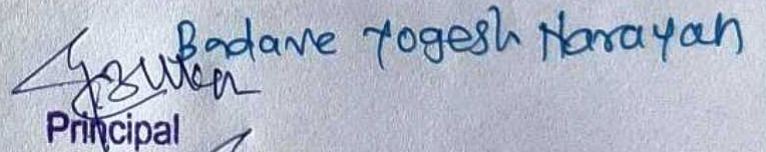 Badane Yogesh Narayan
Principal